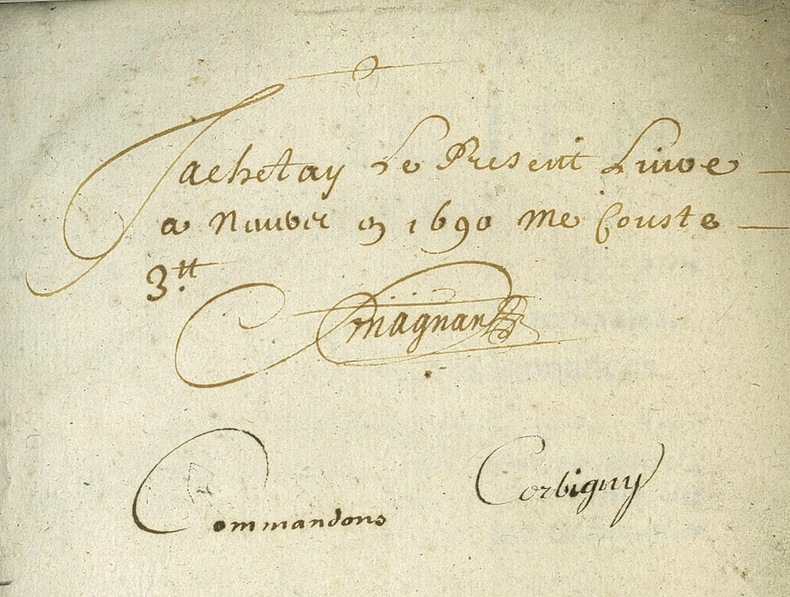 Jachetay Le Present Liuve
a Neuver en 1690 me Couste
3.tt
magnan
Commandons Corbigny